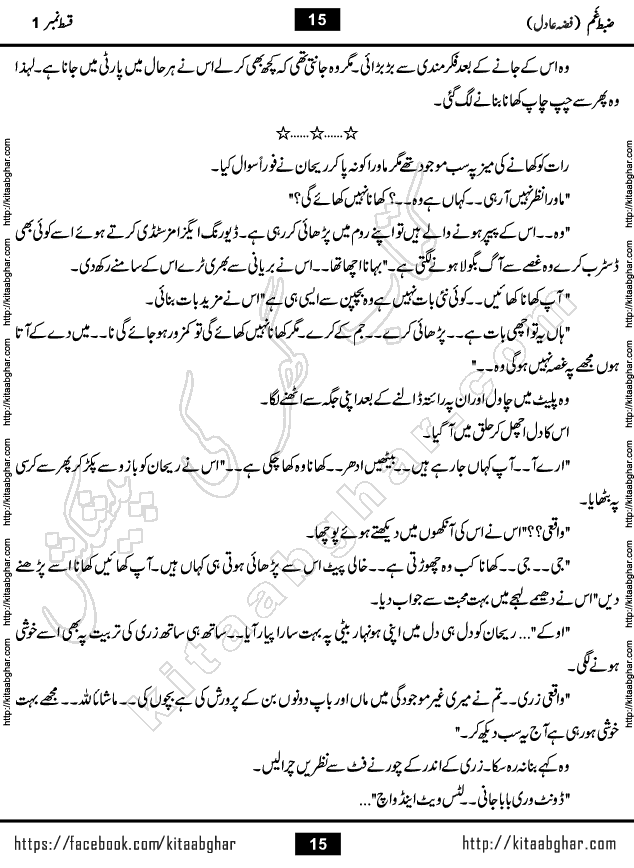 ضبطِ غم (فضہ عادل) 15 قسط نمبر 1
وہ اس کے جانے کے بعد فکر مندی سے بڑبڑائی۔ مگر وہ جانتی تھی کہ کچھ بھی کر لے اس نے ہر حال میں پارٹی میں جانا ہے۔ لہذا
وہ پھر سے چپ چاپ کھانا بنانے لگ گئی۔
☆......☆......☆
رات کو کھانے کی میز پہ سب موجود تھے مگر ماورا کو نہ پا کر ریحان نے فوراً سوال کیا۔
"ماورا نظر نہیں آ رہی۔۔ کہاں ہے وہ۔۔؟ کھانا نہیں کھائے گی؟"
"وہ۔۔ اس کے پیپر ہونے والے ہیں تو اپنے روم میں پڑھائی کر رہی ہے۔ ڈیورنگ ایگزامز سٹڈی کرتے ہوئے اسے کوئی بھی
ڈسٹرب کرے وہ غصے سے آگ بگولا ہونے لگتی ہے۔" بہانا اچھا تھا۔۔ اس نے بریانی سے بھری ٹرے اس کے سامنے رکھ دی۔
"آپ کھانا کھائیں۔۔ کوئی نئی بات نہیں ہے وہ بچپن سے ایسی ہی ہے" اس نے مزید بات بنائی۔
"ہاں یہ تو اچھی بات ہے۔۔ پڑھائی کرے۔۔ جم کے کرے۔ مگر کھانا نہیں کھائے گی تو کمزور ہو جائے گی نا۔۔ میں دے کے آتا
ہوں مجھے پہ غصہ نہیں ہوگی وہ۔۔"
وہ پلیٹ میں چاول اور ان پہ رائتہ ڈالنے کے بعد اپنی جگہ سے اٹھنے لگا۔
اس کا دل اچھل کر حلق میں آ گیا۔
"ارے آ۔۔ آپ کہاں جا رہے ہیں۔۔ بیٹھیں ادھر۔۔ کھانا وہ کھا چکی ہے۔۔" اس نے ریحان کو بازو سے پکڑ کر پھر سے کرسی
پہ بٹھایا۔
"واقعی؟؟" اس نے اس کی آنکھوں میں دیکھتے ہوئے پوچھا۔
"جی۔۔ جی۔۔ کھانا کب وہ چھوڑتی ہے۔۔ خالی پیٹ اس سے پڑھائی ہوتی ہی کہاں ہیں۔ آپ کھائیں کھانا اسے پڑھنے
دیں" اس نے دھیمے لہجے میں بہت محبت سے جواب دیا۔
"اوکے"... ریحان کو دل ہی دل میں اپنی ہونہار بیٹی پہ بہت سارا پیار آیا۔۔ ساتھ ہی ساتھ زری کی تربیت پہ بھی اسے خوشی
ہونے لگی۔
"واقعی زری۔۔ تم نے میری غیر موجودگی میں ماں اور باپ دونوں بن کے پرورش کی ہے بچوں کی۔۔ ماشاءاللہ۔۔ مجھے بہت
خوشی ہو رہی ہے آج یہ سب دیکھ کر۔"
وہ کہے بنا نہ رہ سکا۔ زری کے اندر کے چور نے فٹ سے نظریں چرا لیں۔
"ڈونٹ وری بابا جانی۔۔ لٹس ویٹ اینڈ واچ"...
https://facebook.com/kitaabghar 15 http://kitaabghar.com
http://kitaabghar.com
http://kitaabghar.com
http://kitaabghar.com
http://kitaabghar.com
http://kitaabghar.com
http://kitaabghar.com
http://kitaabghar.com
http://kitaabghar.com
http://kitaabghar.com
http://kitaabghar.com
http://kitaabghar.com
http://kitaabghar.com
کتاب گھر کی پیشکش
kitaabghar.com